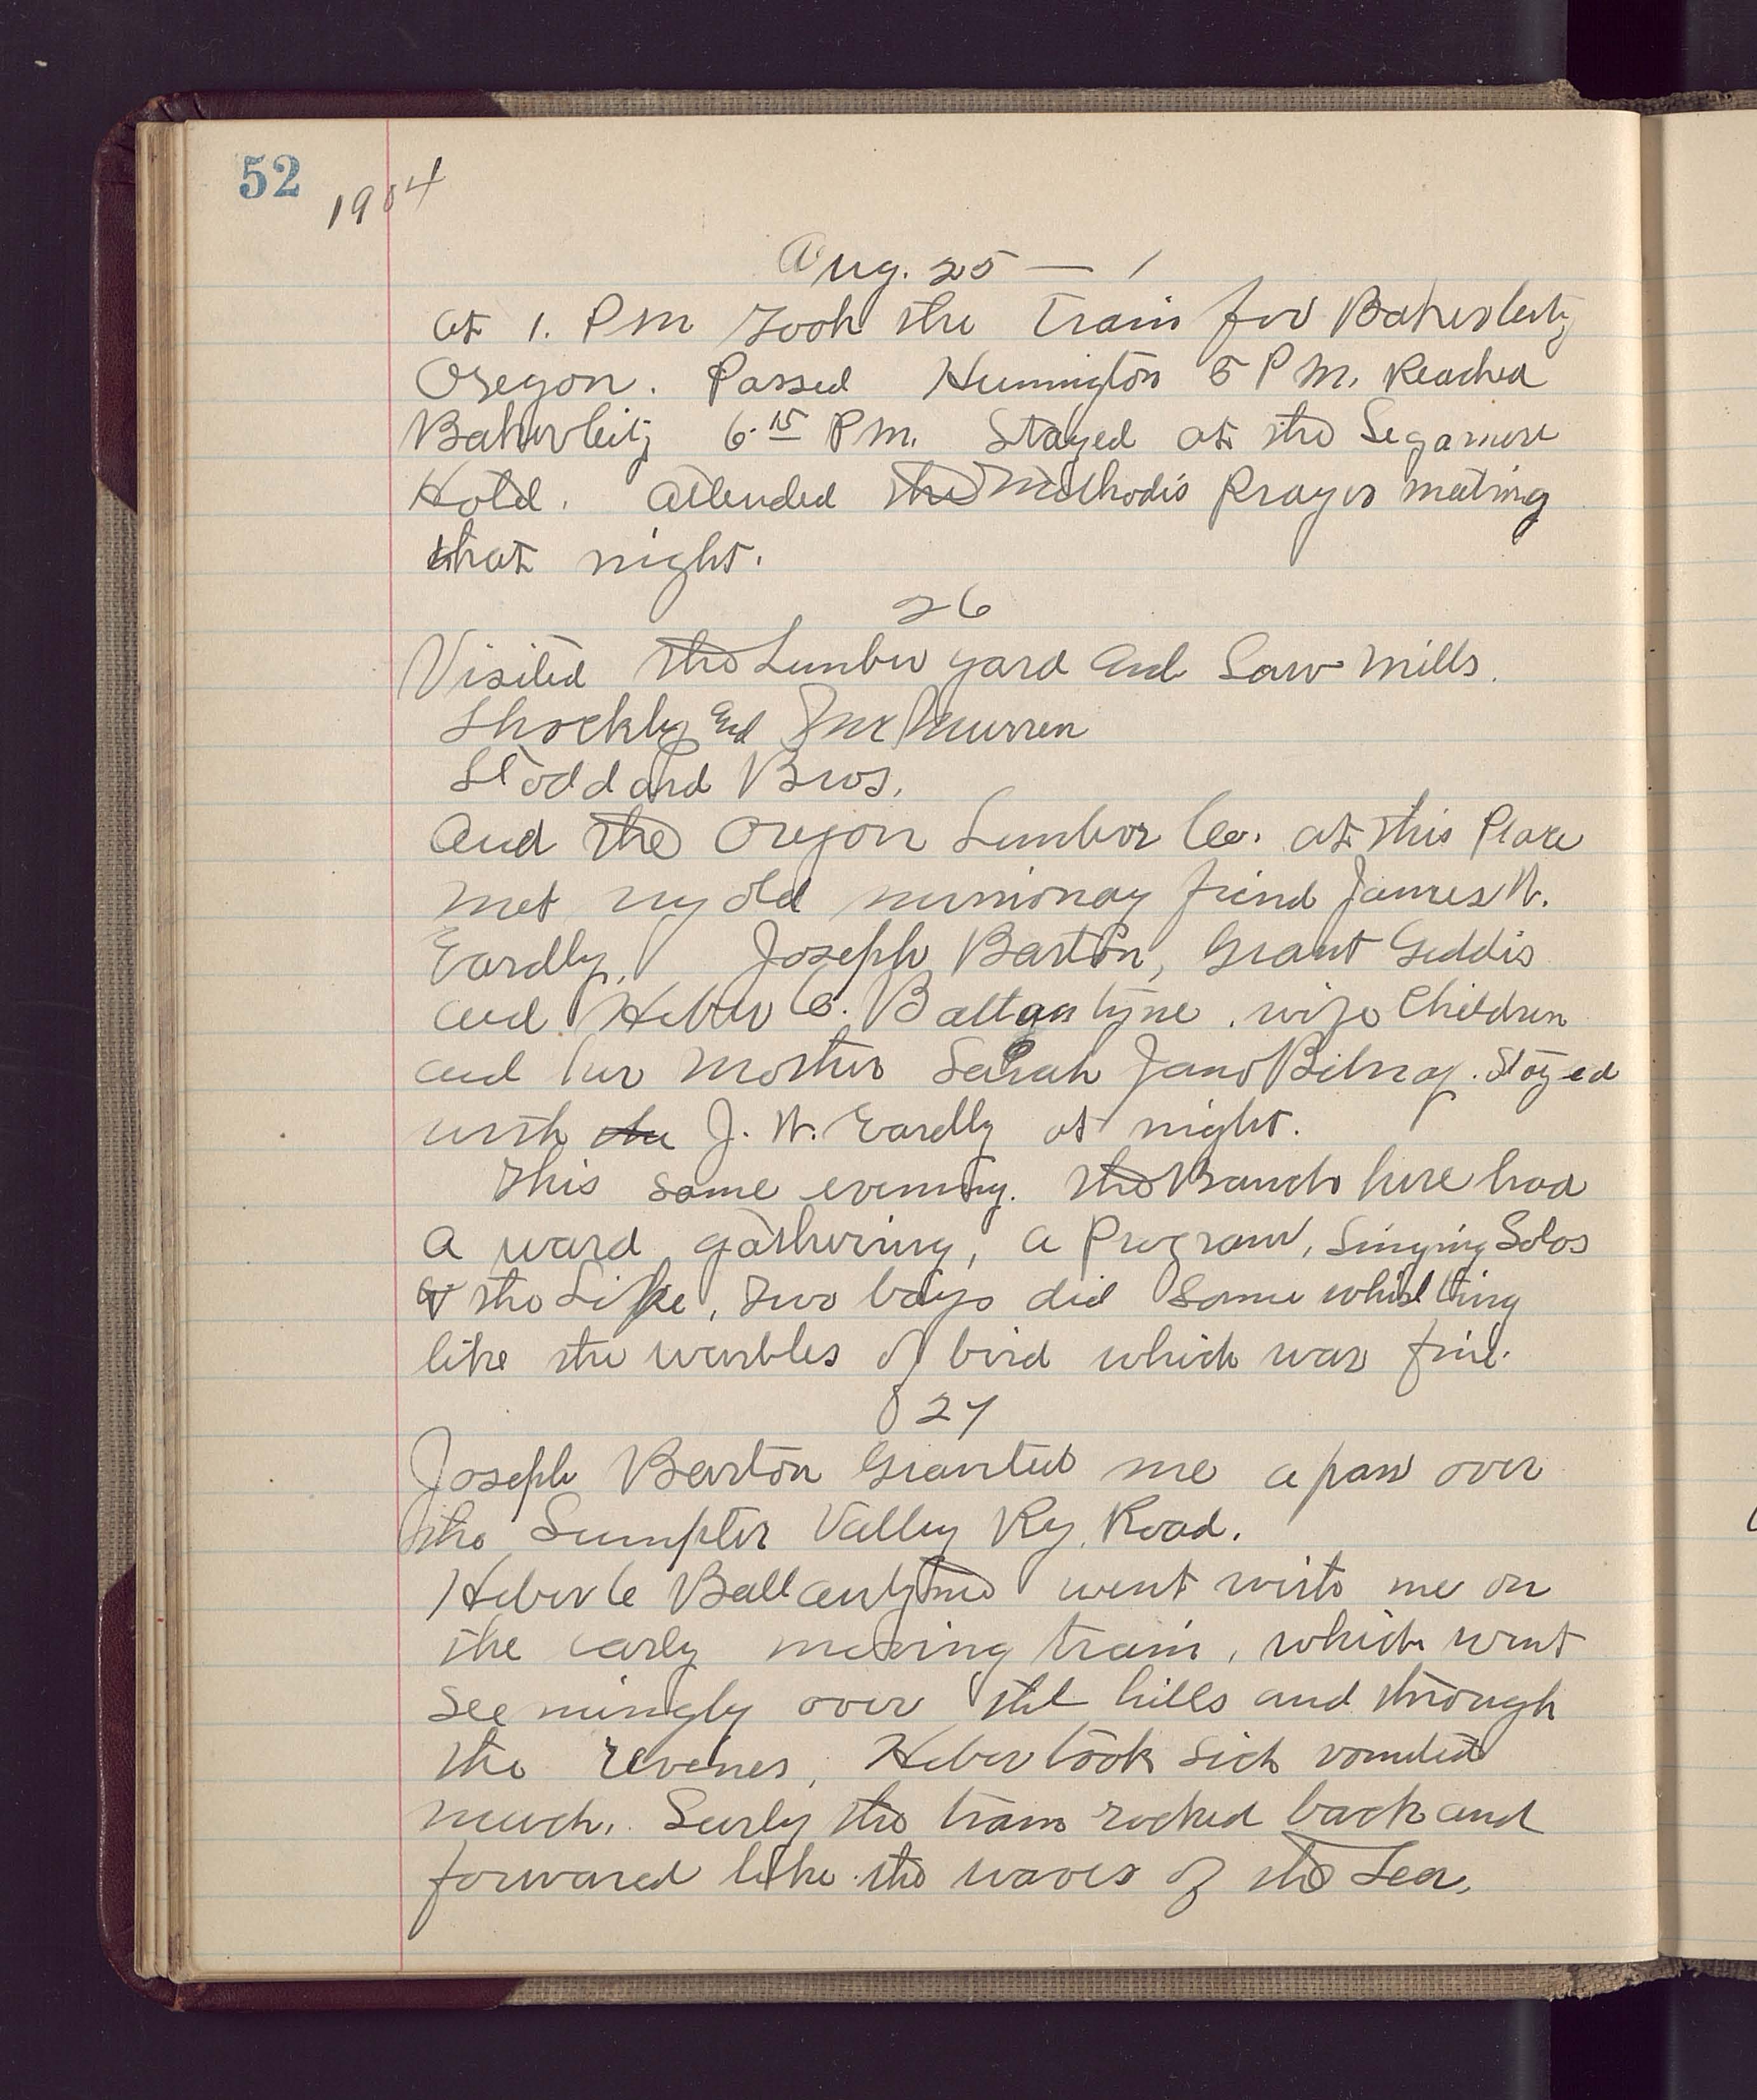 52
1904
Aug. 25 — 1
at 1. P m Took the Train for Bakercity
Oregon. Passed Hunnington 5 P M. Reached
Bakercity 6.15 P M. Stayed at the Segamore
Hotel. Attended the Methodis Prayer meting
that night.
26
Visited the Lumber yard and Saw mills.
Shockly and McMurren
Stoddard Bros.
And the Oregon Lumber Co. at this Place
met my old missionay friend James W.
Eardly. Joseph Barton, Grant Geddis
and Heber C. Ballantyne. wife Children
and her Mother Sarah Jane Stayed
with the J. W. Eardly at night.
This same evening. the Branch here had
a ward gathering, a Program, Singing Solos
& the Like, Two boys did some whistling
like the warbles of bird which was fine.
27
Joseph Barton Granted me a pass over
the Sumpter Valley Ry. Road.
Heber C Ballantyne went with me on
the early morning train, which went
seemingly over the hills and through
the revenes, Heber took sick vomited
much. Surly the train rocked back and
forward like the waves of the Sea.